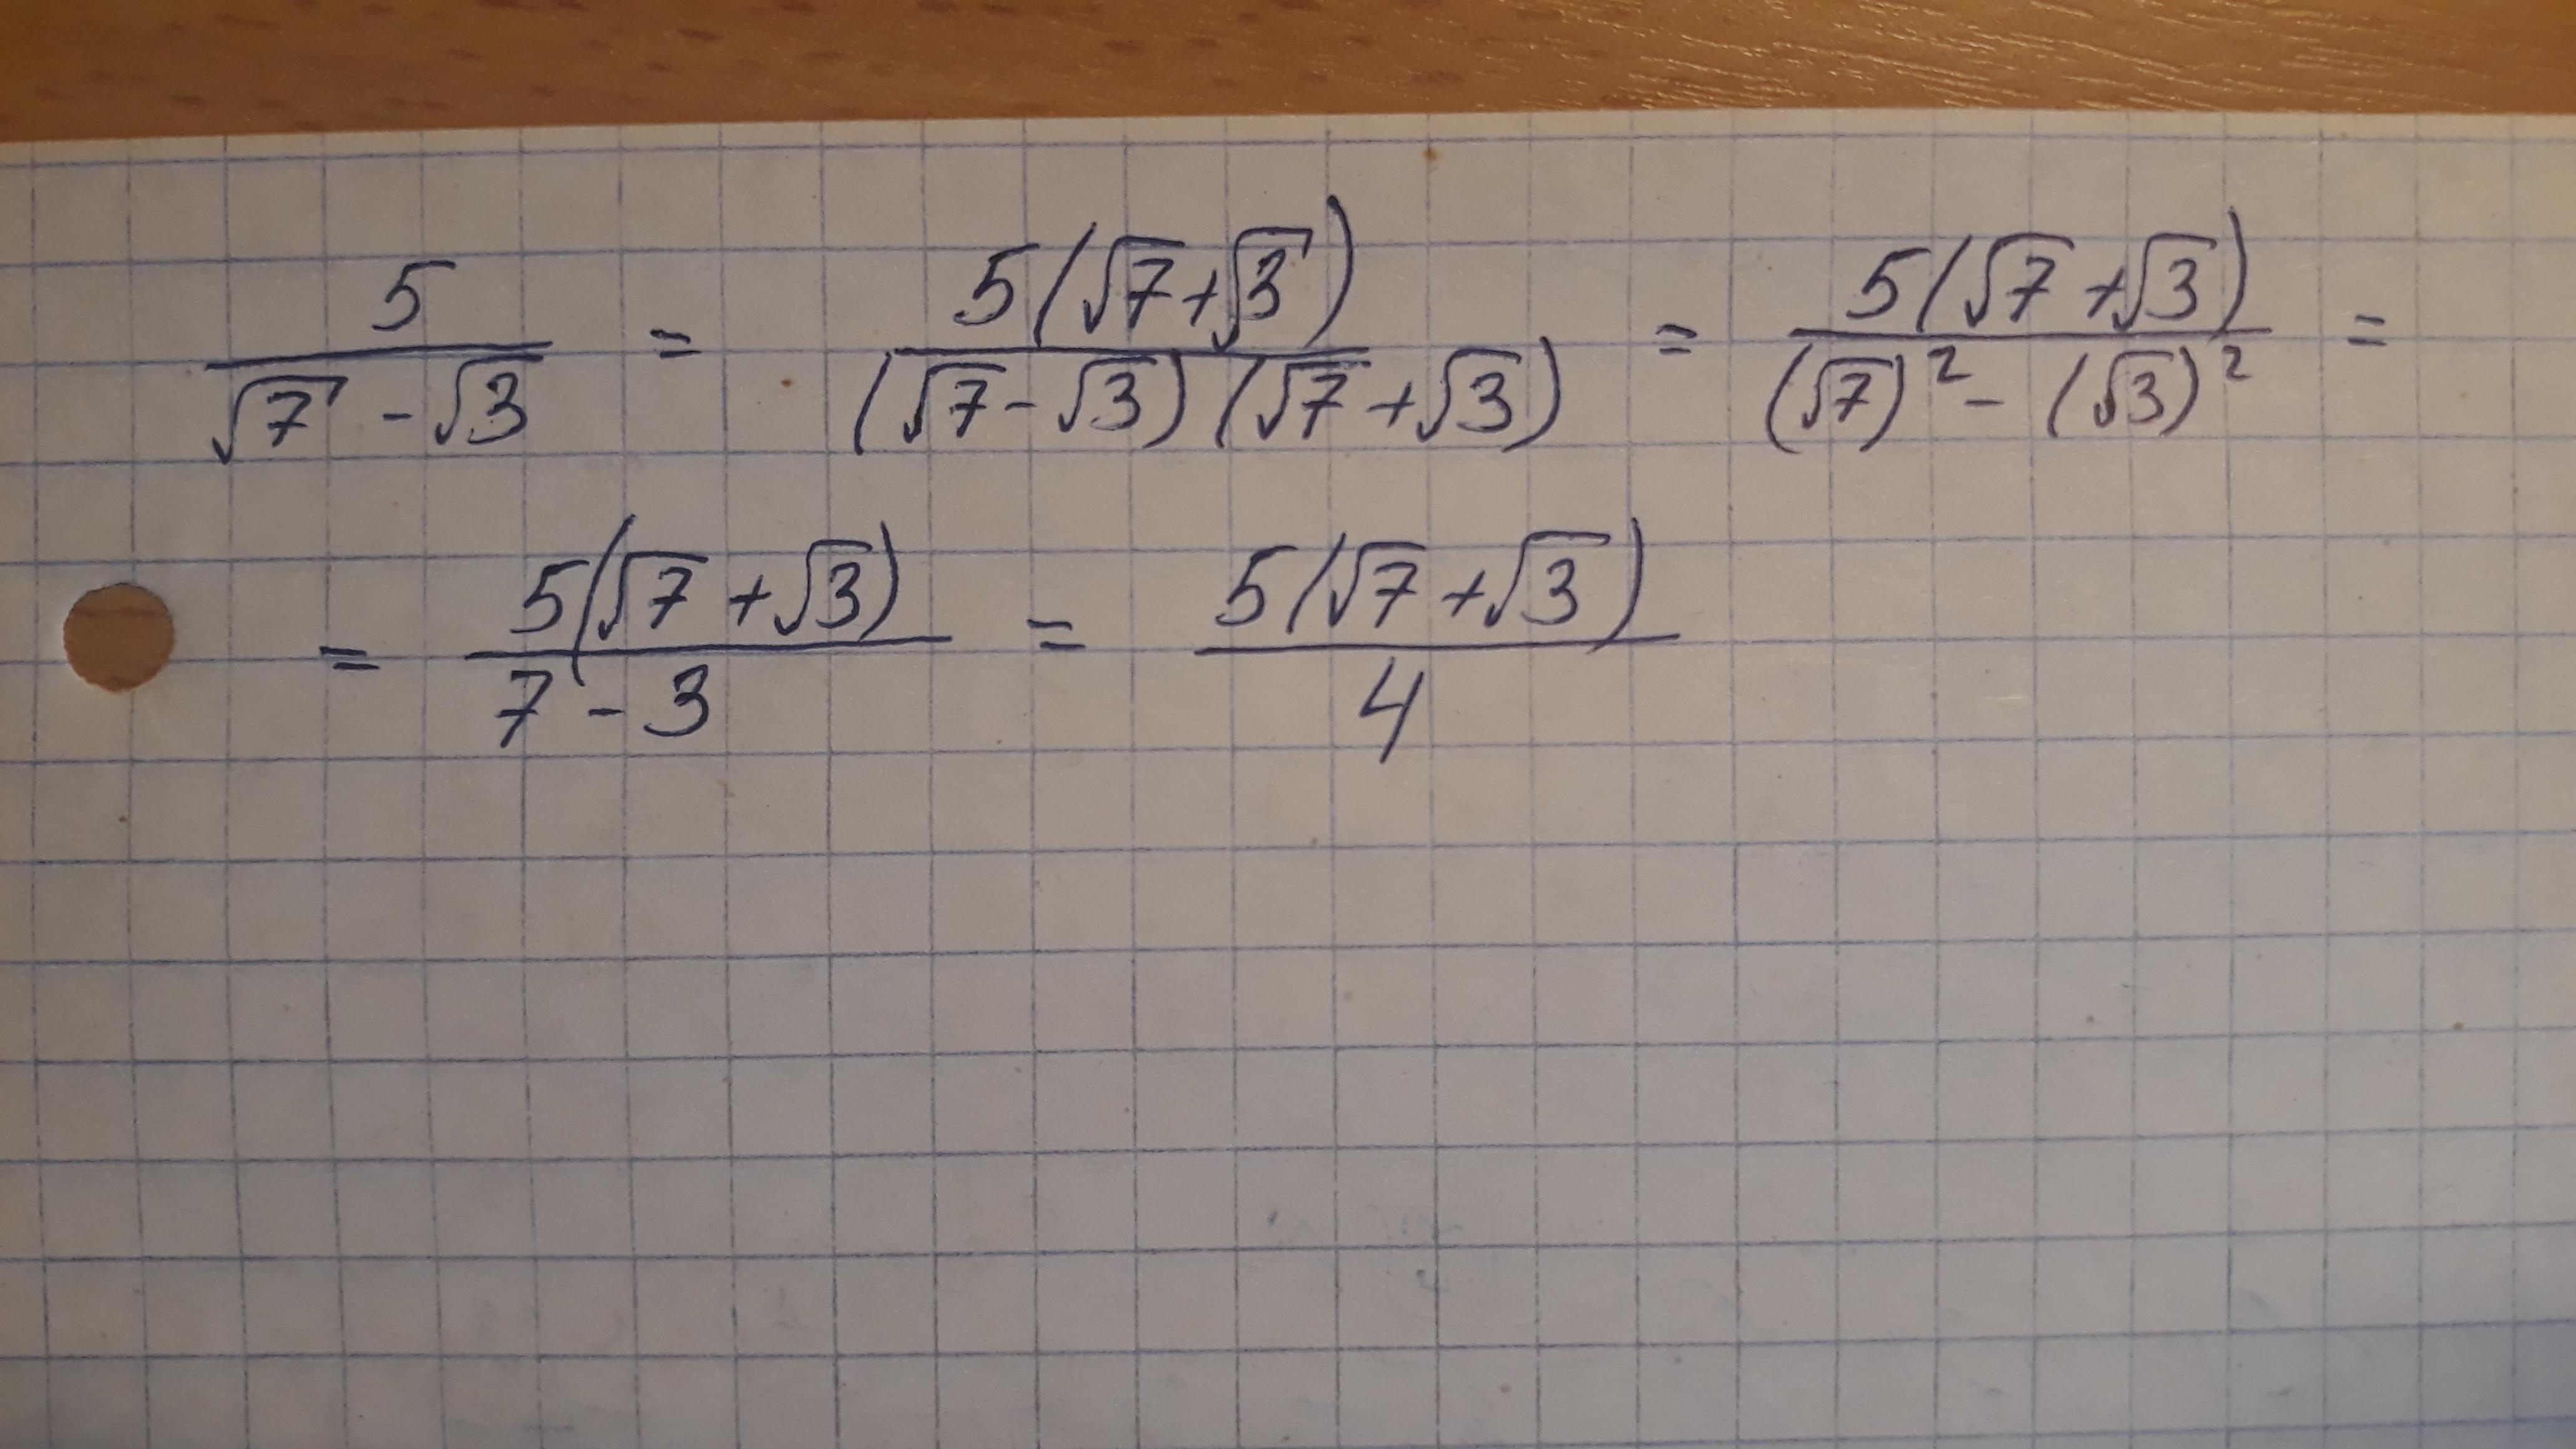 5/(√7 - √3) = 5(√7+√3)/((√7-√3)(√7+√3)) = 5(√7+√3)/((√7)² - (√3)²) =
= 5(√7+√3)/(7-3) = 5(√7+√3)/4